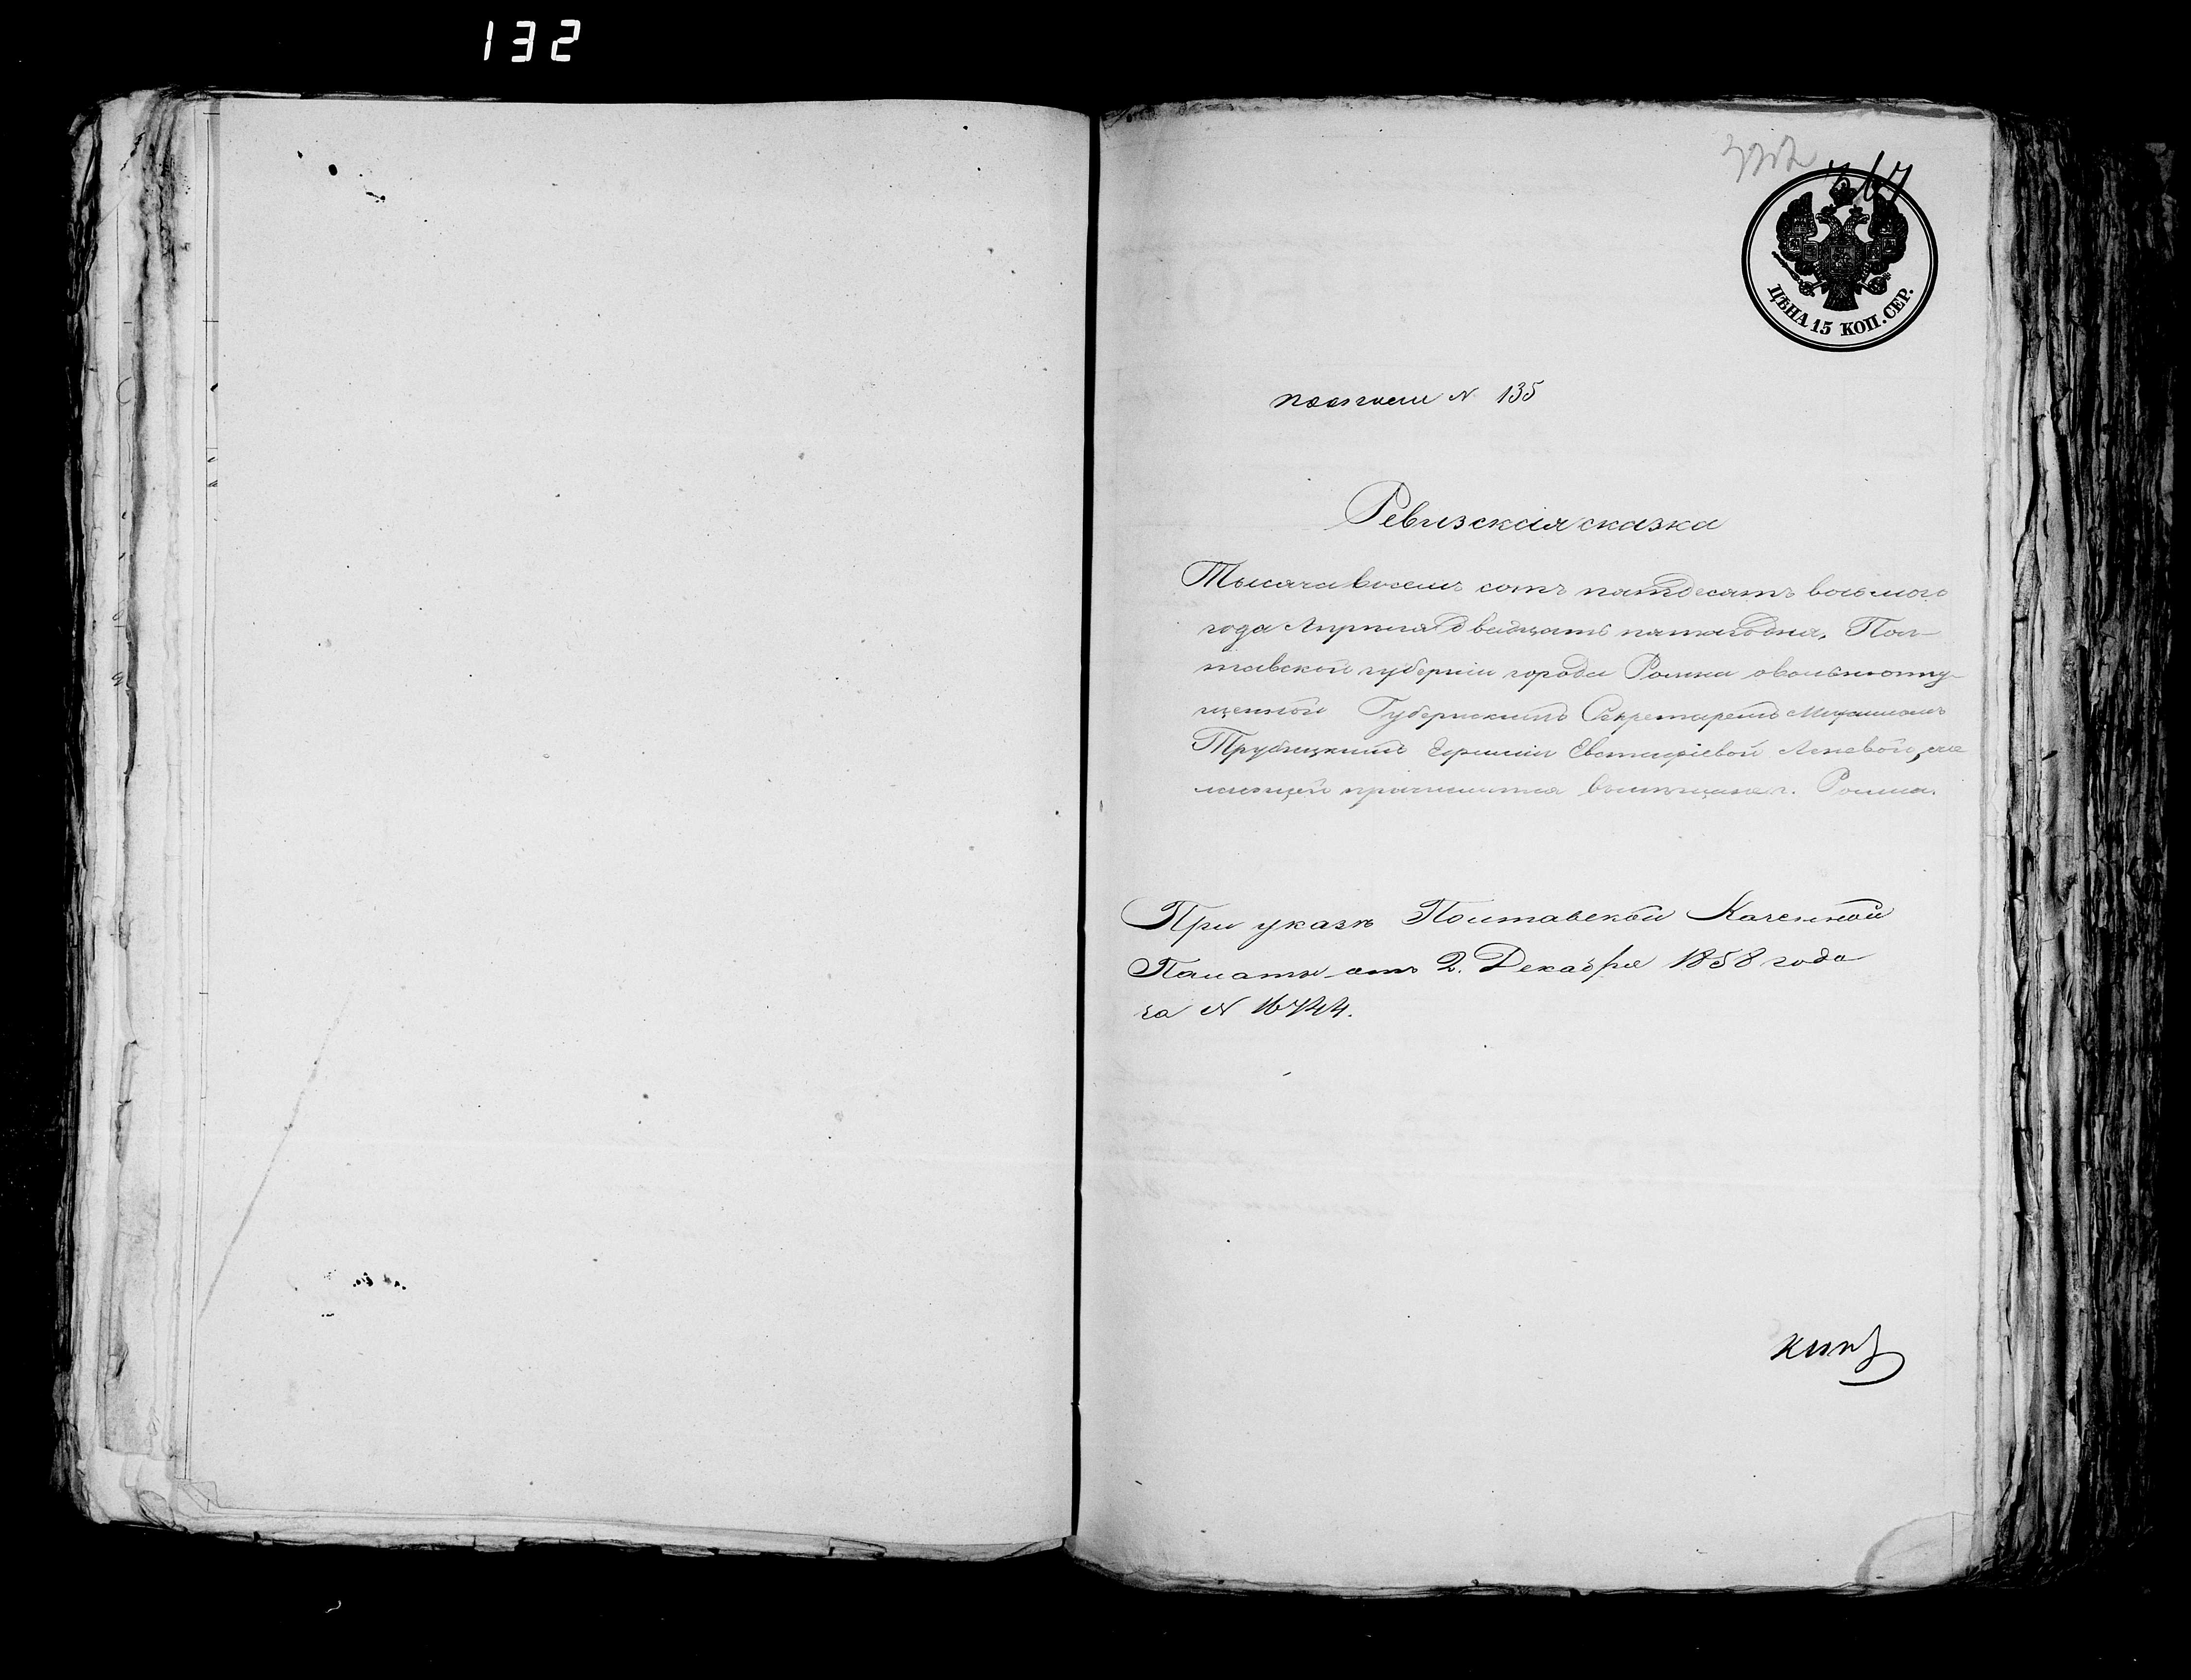 132
367
ЦѢНА 15 КОП. СЕР.
N 135
Ревизская сказка
Тысяча восемь сотъ пятдесятъ восьмого
года Апреля двадцать пятаго дня, Пол-
тавской губерніи города Ромна о вольноотпу-
щенной Губернскимъ Секретаремъ Михаиломъ
Трубицкимъ Евстафіевой же
лающей причислится въ мѣщане г. Ромна.
При указѣ Полтавской Казенной
Палаты отъ 2. Декабря 1858 года
за N 16744.